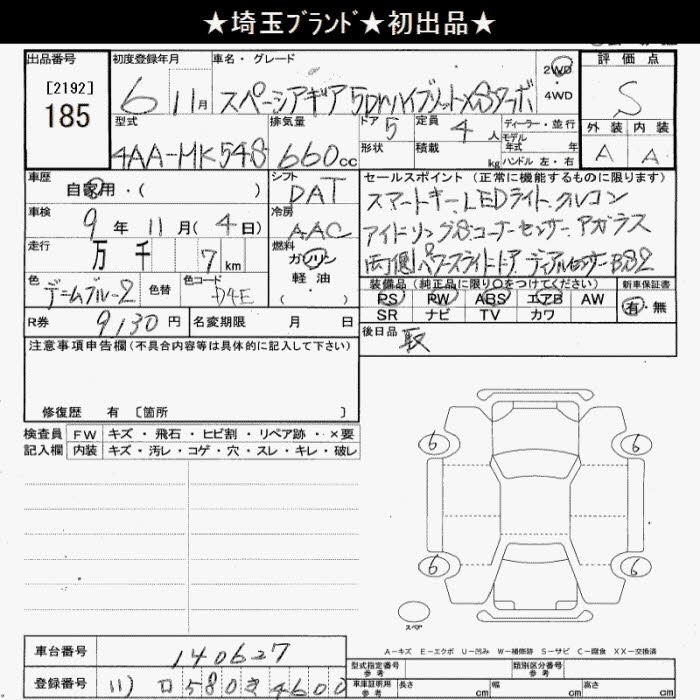 ★埼玉ﾌﾞﾗﾝﾄﾞ★初出品★
出品番号
[2192]
185
初度登録年月
6 11月
車名・グレード
スペーシアギア 5Dr ハイブリットXSターボ
2WD
・
4WD
評価点
S
外装 内装
A A
型式
4AA-MK54S
排気量
660cc
ドア 5
形状
定員 4人
積載 kg
ディーラー・並行
モデル
年式 年
ハンドル 左・右
車歴
自家用・( )
車検
9年 11月(4日)
走行
万 千 7km
色
デニムブルー2
色替
色コード
D4E
シフト
DAT
冷房
AAC
燃料
ガソリン
軽油
( )
セールスポイント (正常に機能するものに限ります)
スマートキー、LEDライト、クルコン
アイドリングS、コーナーセンサー、アガラス
両側パワースライドドア デュアルセンサーBS2
装備品(純正品に限り○をつけてください)
PS PW ABS エアB AW
SR ナビ TV カワ
新車保証書
有・無
後日品
取
R券 9130円
名変期限 月 日
注意事項申告欄(不具合内容等は具体的に記入して下さい)
修復歴 有 [箇所 ]
検査員 FW キズ・飛石・ヒビ割・リペア跡・×要
記入欄 内装 キズ・汚レ・コゲ・穴・スレ・キレ・破レ
6 6
6 6
スペア
A-キズ E-エクボ U-凹み W-補修跡 S-サビ C-腐食 XX-交換済
車台番号 140627
登録番号 580 4600
型式指定番号
参考
類別区分番号
参考
車庫証明用
参考
長さ cm 幅 cm 高さ cm